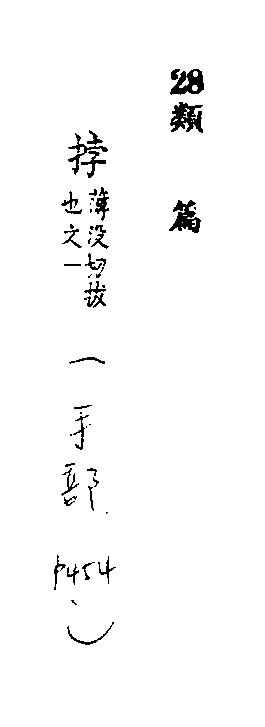 28類篇
捽薄没切拔也文一(手部p454、)